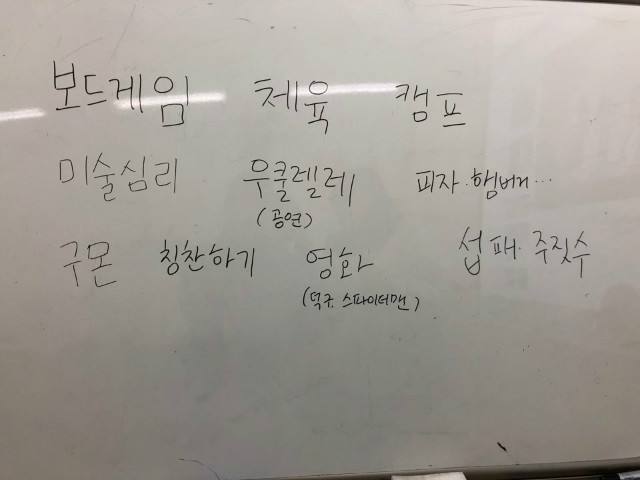 보드게임 체육 캠프
미술심리 우쿨렐레 피자·햄버거…
(공연)
구몬 칭찬하기 영화 섭패·주짓수
(덕구·스파이더맨)